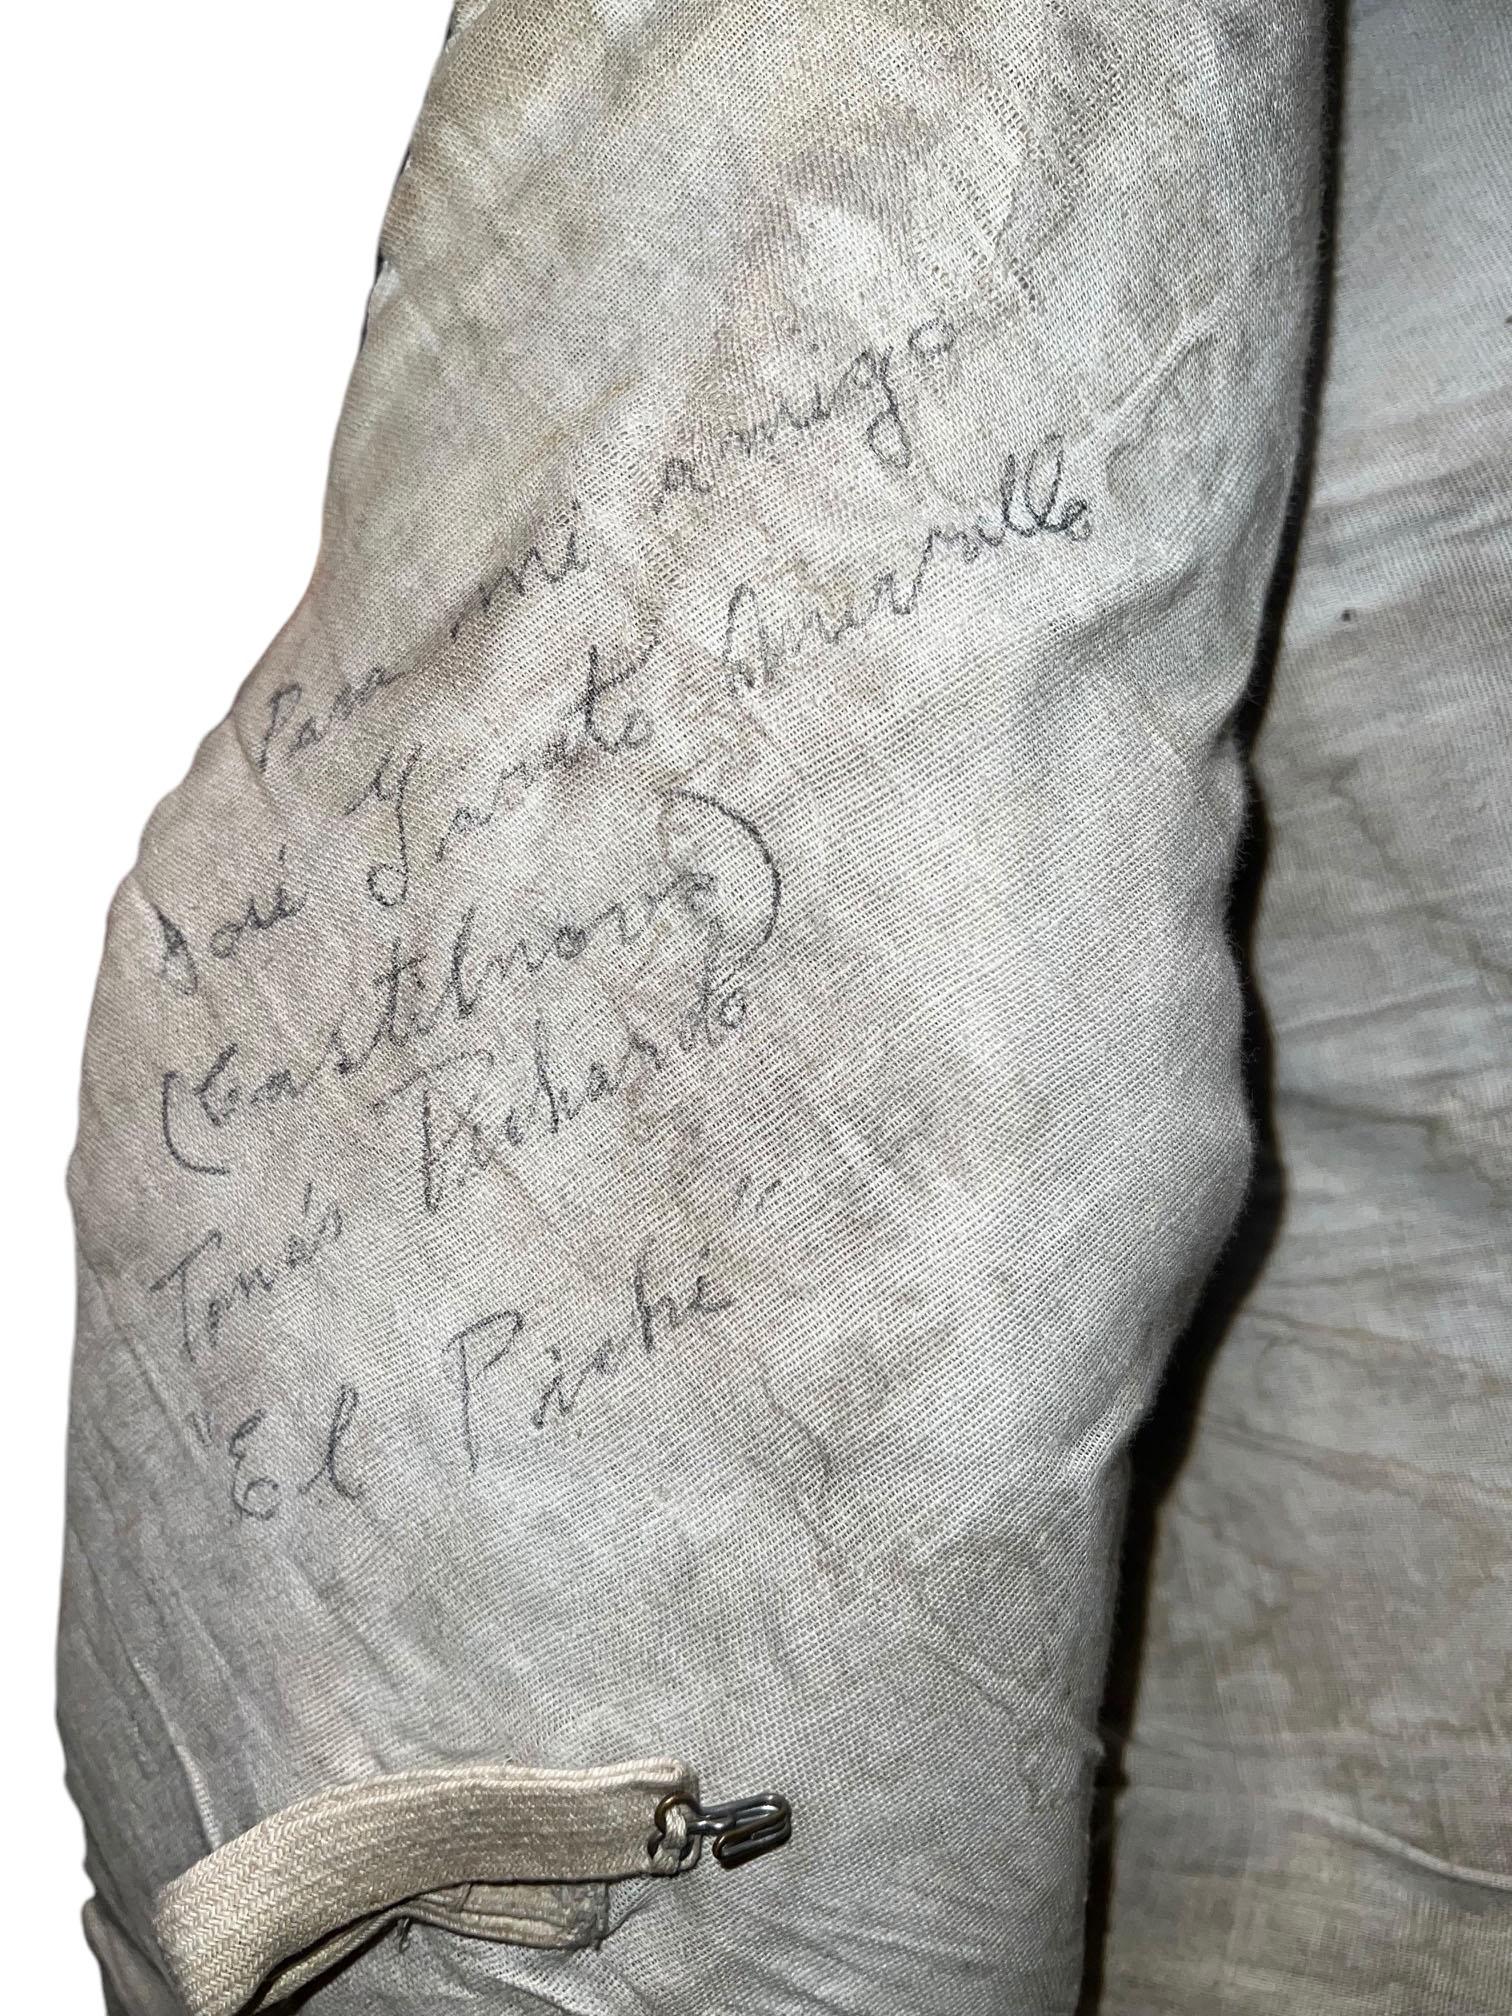 Para mi amigo
José Garate Amerrollo
(Castilnovo)
Tomás Pechardo
"El Piché"